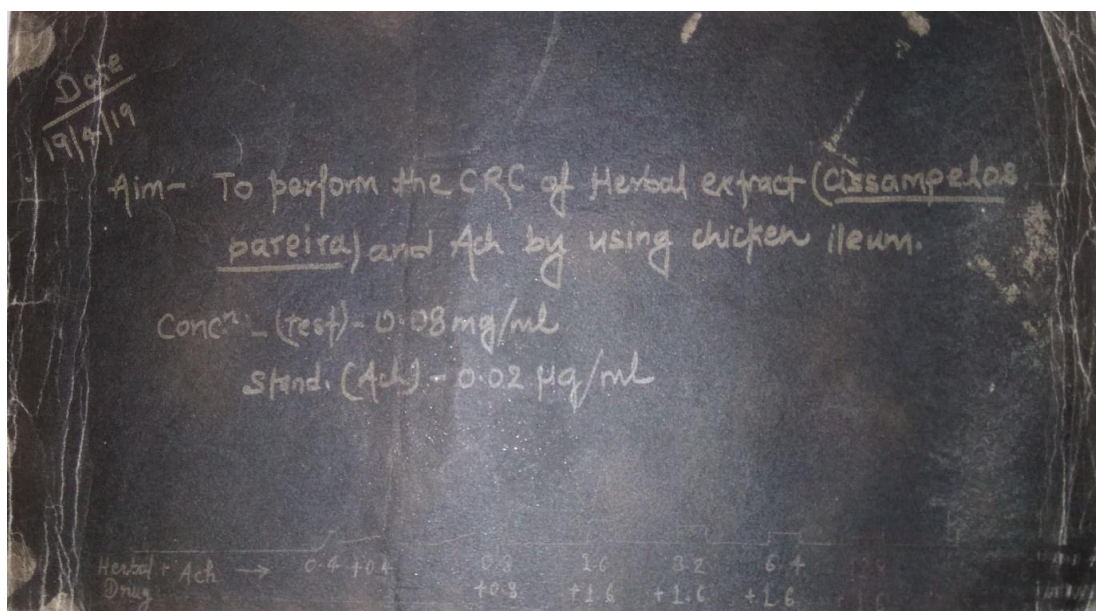 Date
19/4/19
Aim- To perform the CRC of Herbal extract (Cissampelos
pareira) and Ach by using chicken ileum.
Concⁿ - (test) - 0.08 mg/ml
Stand. (Ach) - 0.02 µg/ml
Herbal + Ach → 0.4 +0.4 0.8 1.6 3.2 6.4 12.8
Drug +0.8 +1.6 +1.6 +1.6